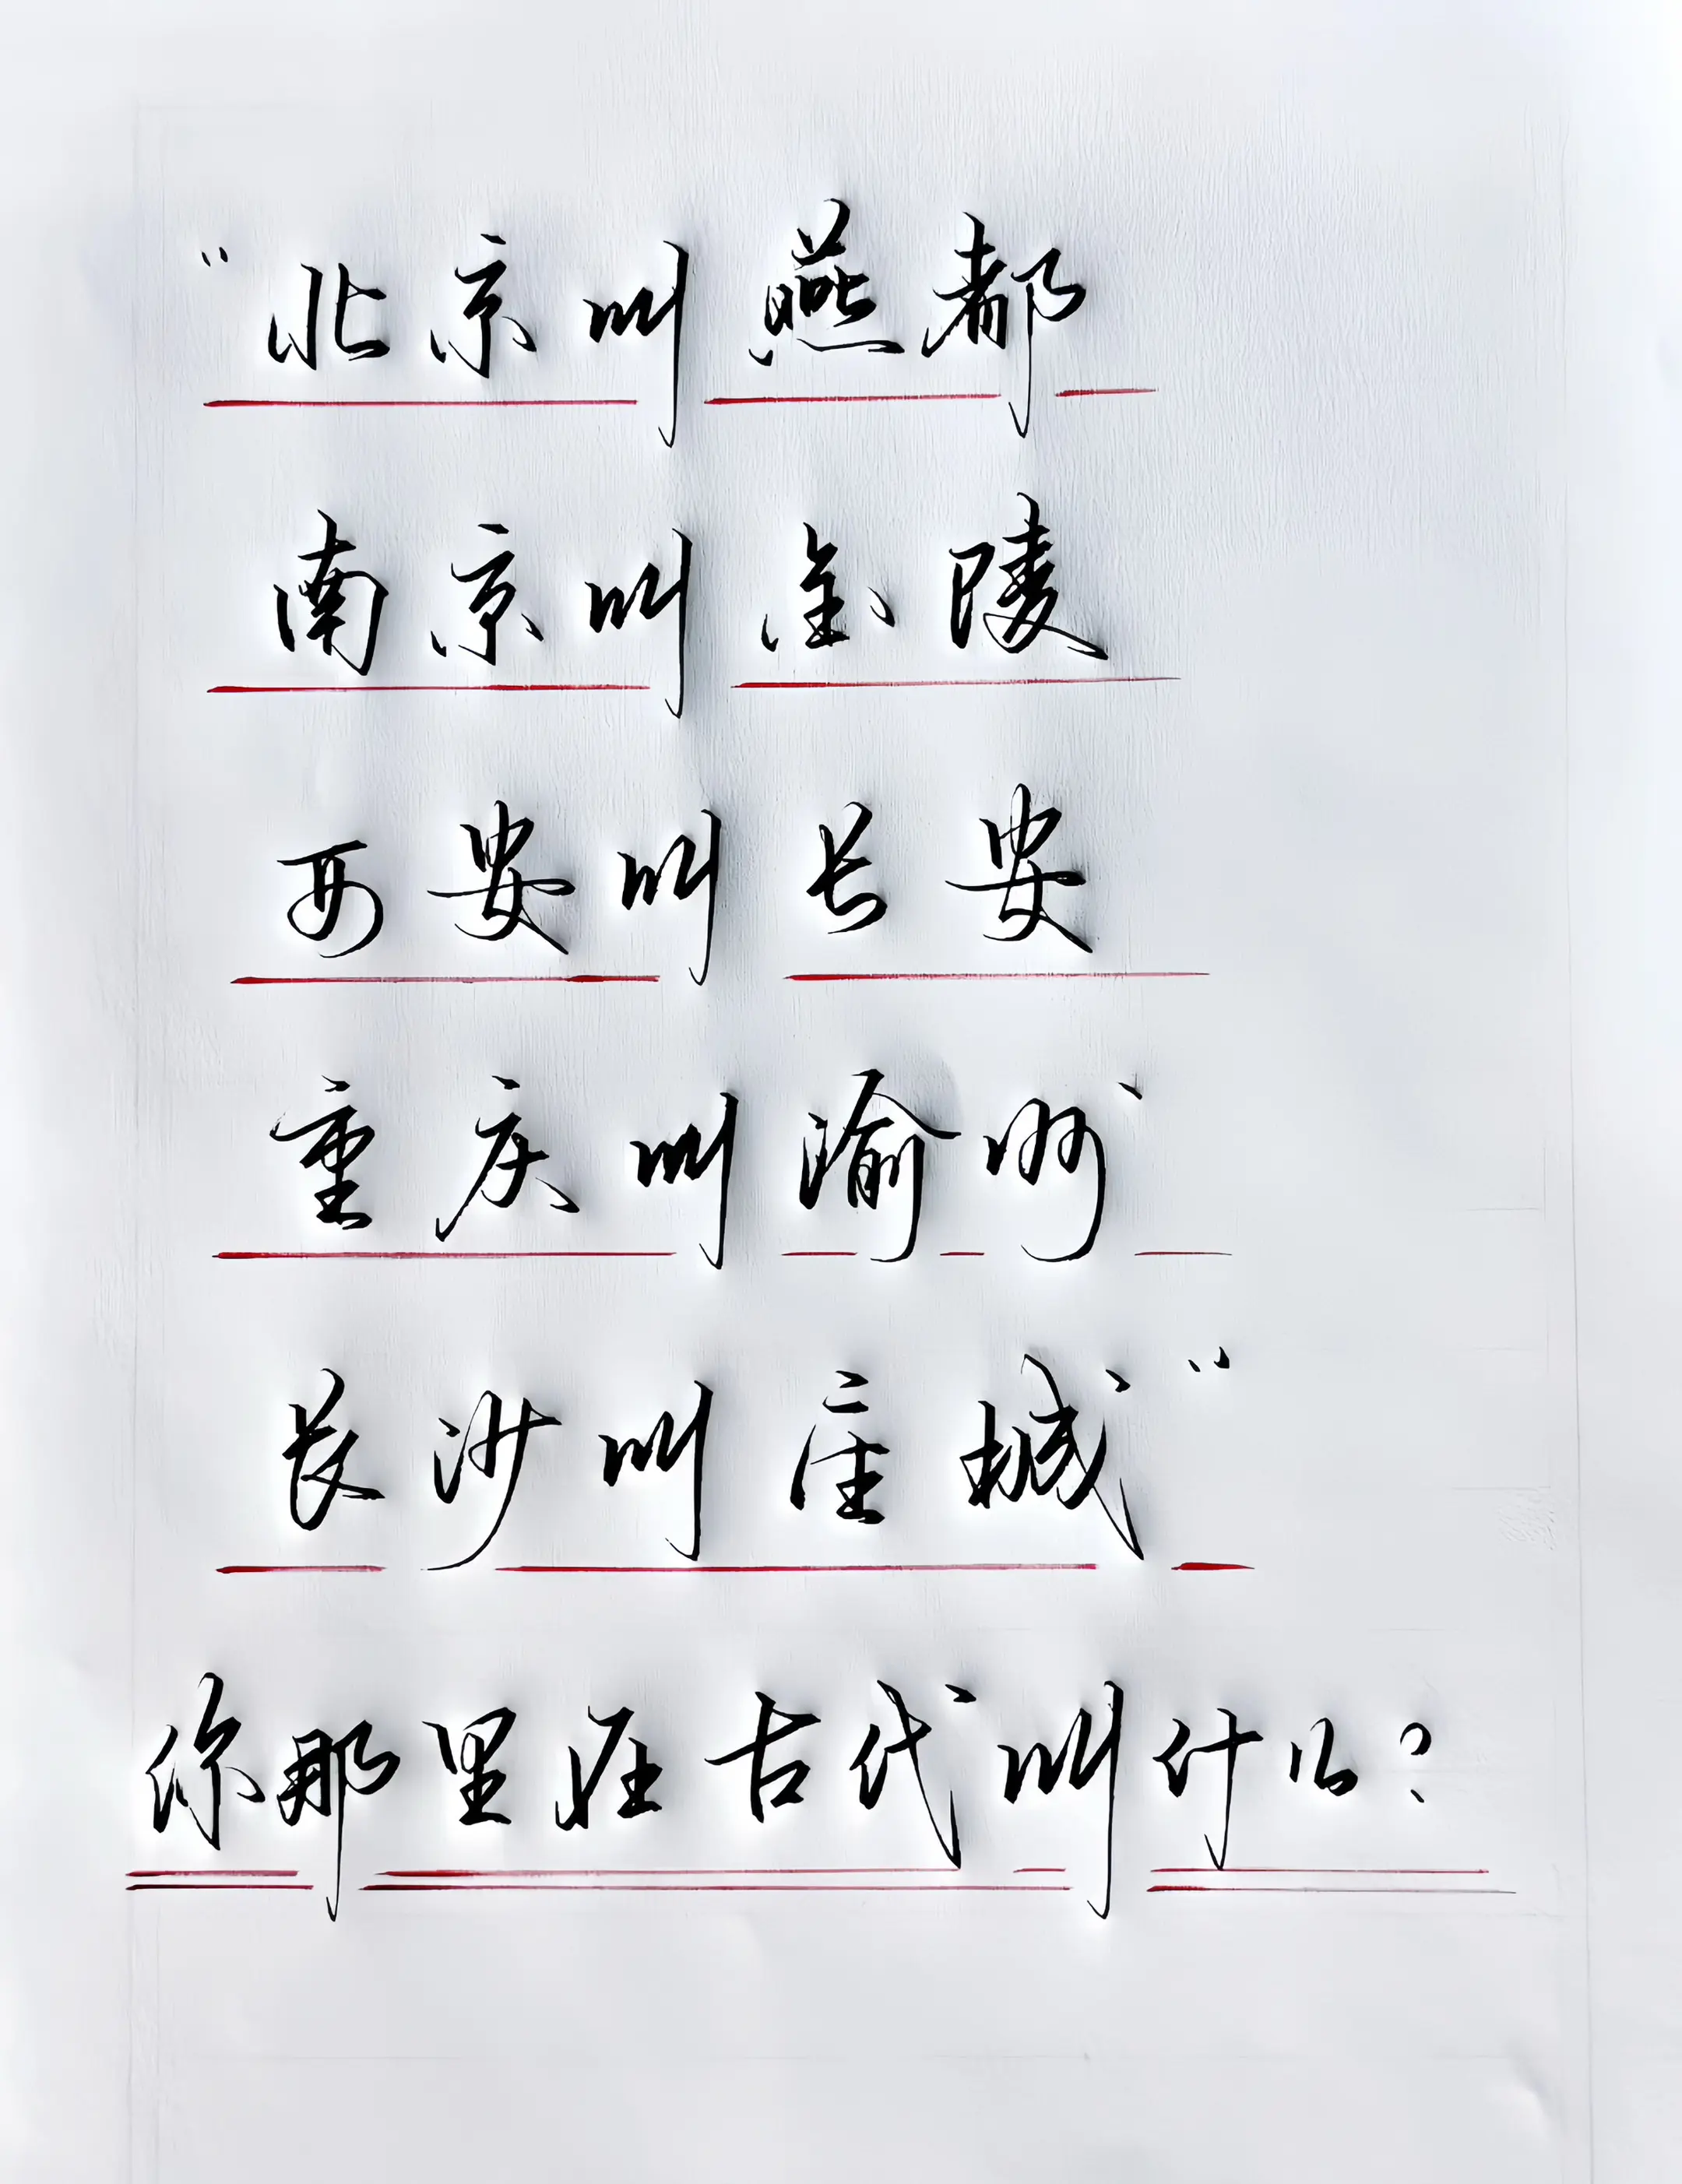 “北京叫燕都
南京叫金陵
西安叫长安
重庆叫渝州
长沙叫星城”
你那里在古代叫什么?